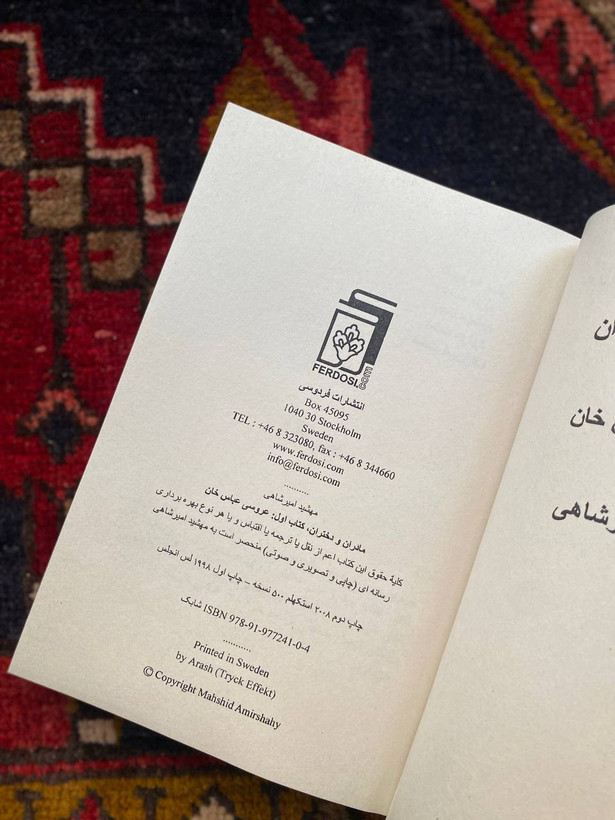 FERDOSI.com
انتشارات فردوسی
Box 45095
1040 30 Stockholm
Sweden
TEL : +46 8 323080, fax : +46 8 344660
www.ferdosi.com
info@ferdosi.com
..........
مهشید امیرشاهی
مادران و دختران، کتاب اول: عروسی عباس خان
کلیهٔ حقوق این کتاب اعم از نقل یا ترجمه یا اقتباس و یا هر نوع بهره برداری
رسانه ای (چاپی و تصویری و صوتی) منحصر است به مهشید امیرشاهی
چاپ دوم ۲۰۰۸ استکهلم ۵۰۰ نسخه – چاپ اول ۱۹۹۸ لس آنجلس
شابک ISBN 978-91-977241-0-4
...........
Printed in Sweden
by Arash (Tryck Effekt)
© Copyright Mahshid Amirshahy
خان